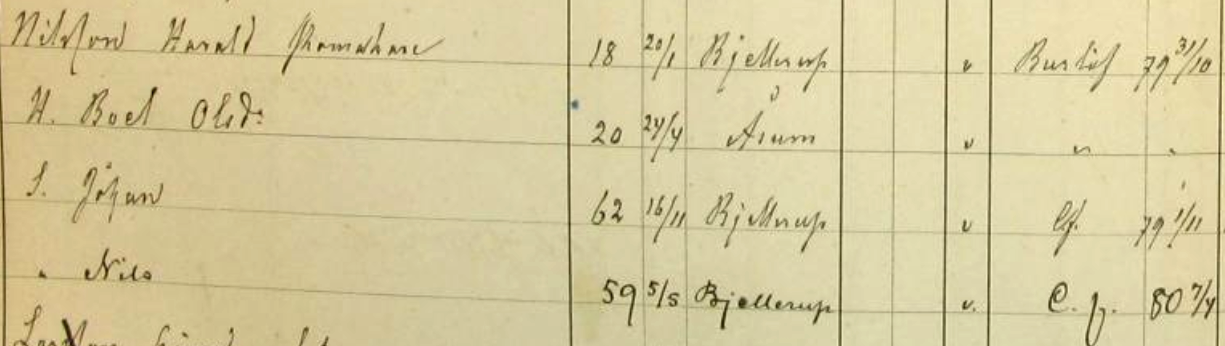 Nilsson Harald Skomakare 18 20/1 Bjellerup v Burlöf 79 31/10
H. Boel Olsdr 20 24/4 Åsum v " "
S. Johan 62 16/11 Bjellerup v Cf. 79 1/11
" Nils 59 5/5 Bjellerup v. C. f. 80 7/4